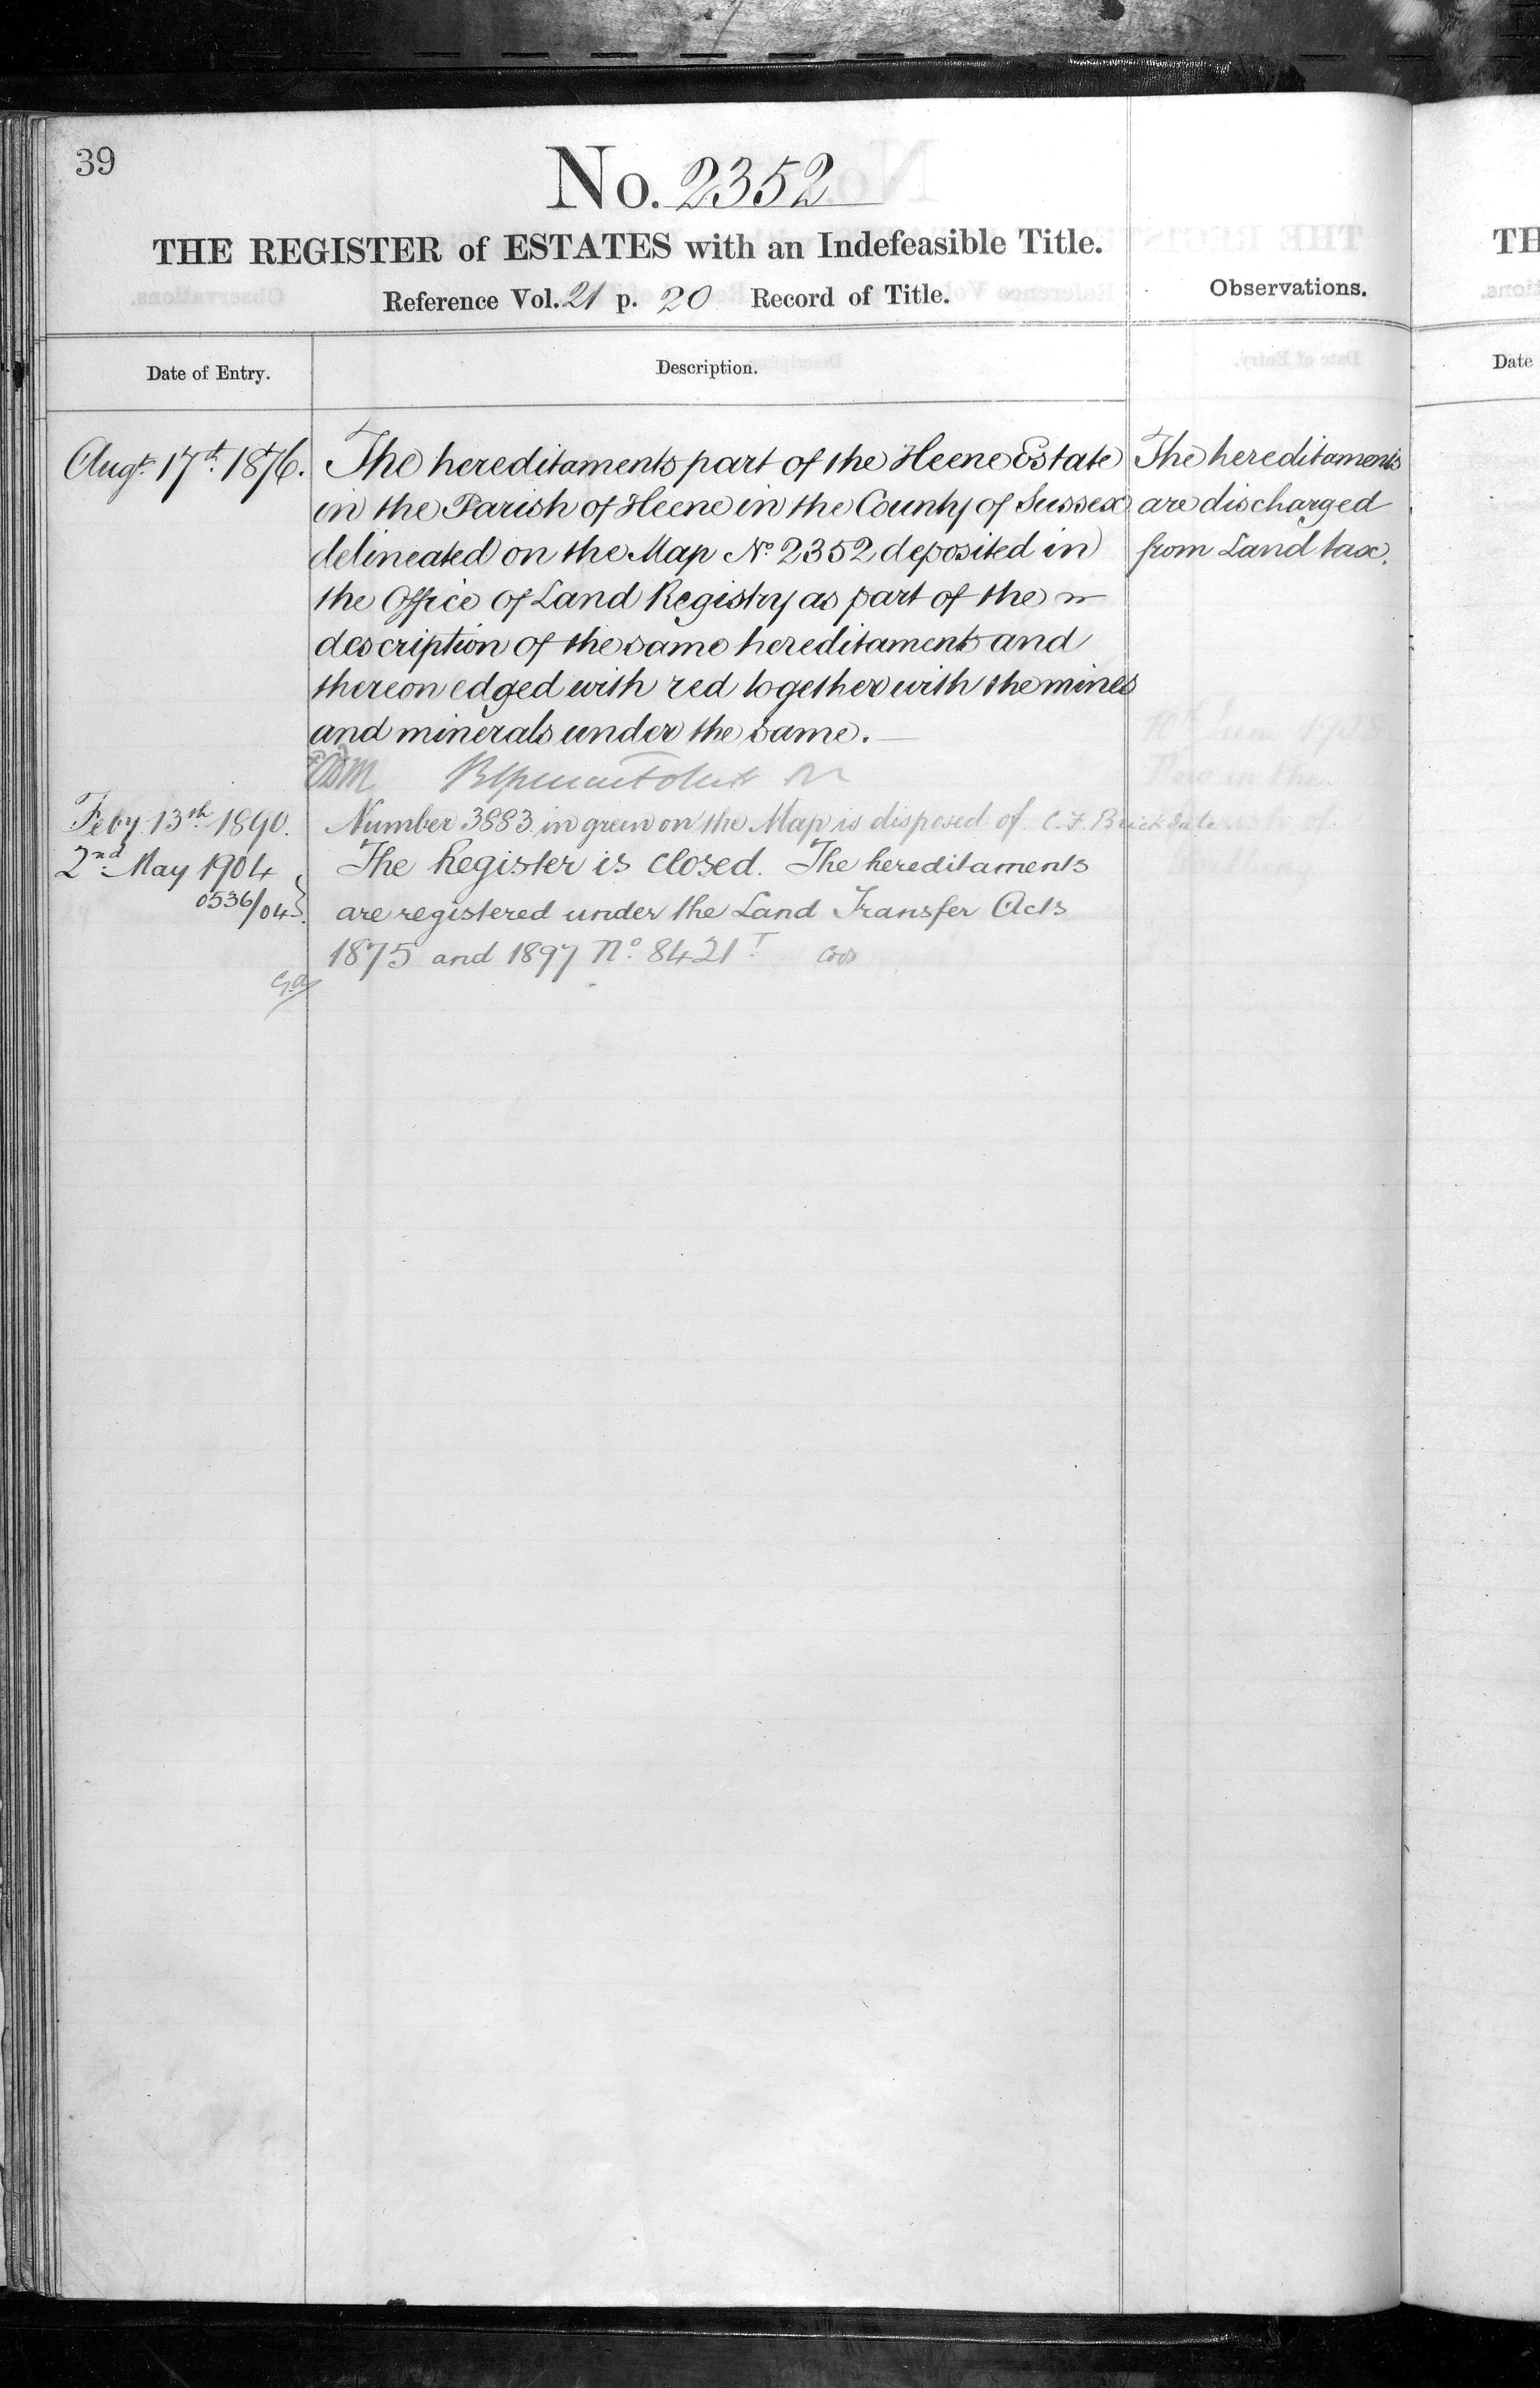 39
No. 2352
THE REGISTER of ESTATES with an Indefeasible Title.
Reference Vol. 21 p. 20 Record of Title.
Observations.
Date of Entry.
Description.
Augt. 17th. 1876.
The hereditaments part of the Heene Estate
in the Parish of Heene in the County of Sussex
delineated on the Map No. 2352 deposited in
the Office of Land Registry as part of the
description of the same hereditaments and
thereon edged with red together with the mines
and minerals under the same.
The hereditaments
are discharged
from Land tax.
Feby. 13th 1890.
Number 3883 in green on the Map is disposed of. C. F. Brickdale
2nd. May 1904
0536/04
The Register is closed. The hereditaments
are registered under the Land Transfer Acts
1875 and 1897 No. 8421
TH
Date